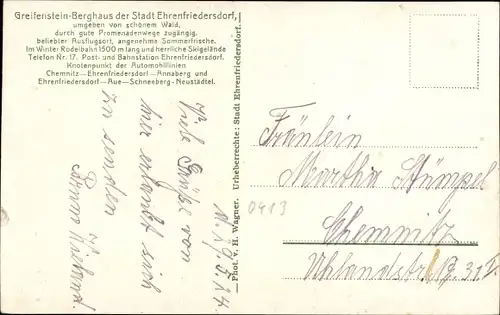 Greifenstein-Berghaus der Stadt Ehrenfriedersdorf,
umgeben von schönem Wald,
durch gute Promenadenwege zugängig,
beliebter Ausflugsort, angenehme Sommerfrische.
Im Winter Rodelbahn 1500 m lang und herrliche Skigelände
Telefon Nr. 17. Post- und Bahnstation Ehrenfriedersdorf.
Knotenpunkt der Automobillinien
Chemnitz—Ehrenfriedersdorf—Annaberg und
Ehrenfriedersdorf—Aue—Schneeberg-Neustädtel.
Viele Grüße von
hier erlaubt sich
zu senden
Phot. v. H. Wagner. Urheberrechte: Stadt Ehrenfriedersdorf.
Fräulein
Martha Stümpel
0413
Chemnitz
Uhlandstr.